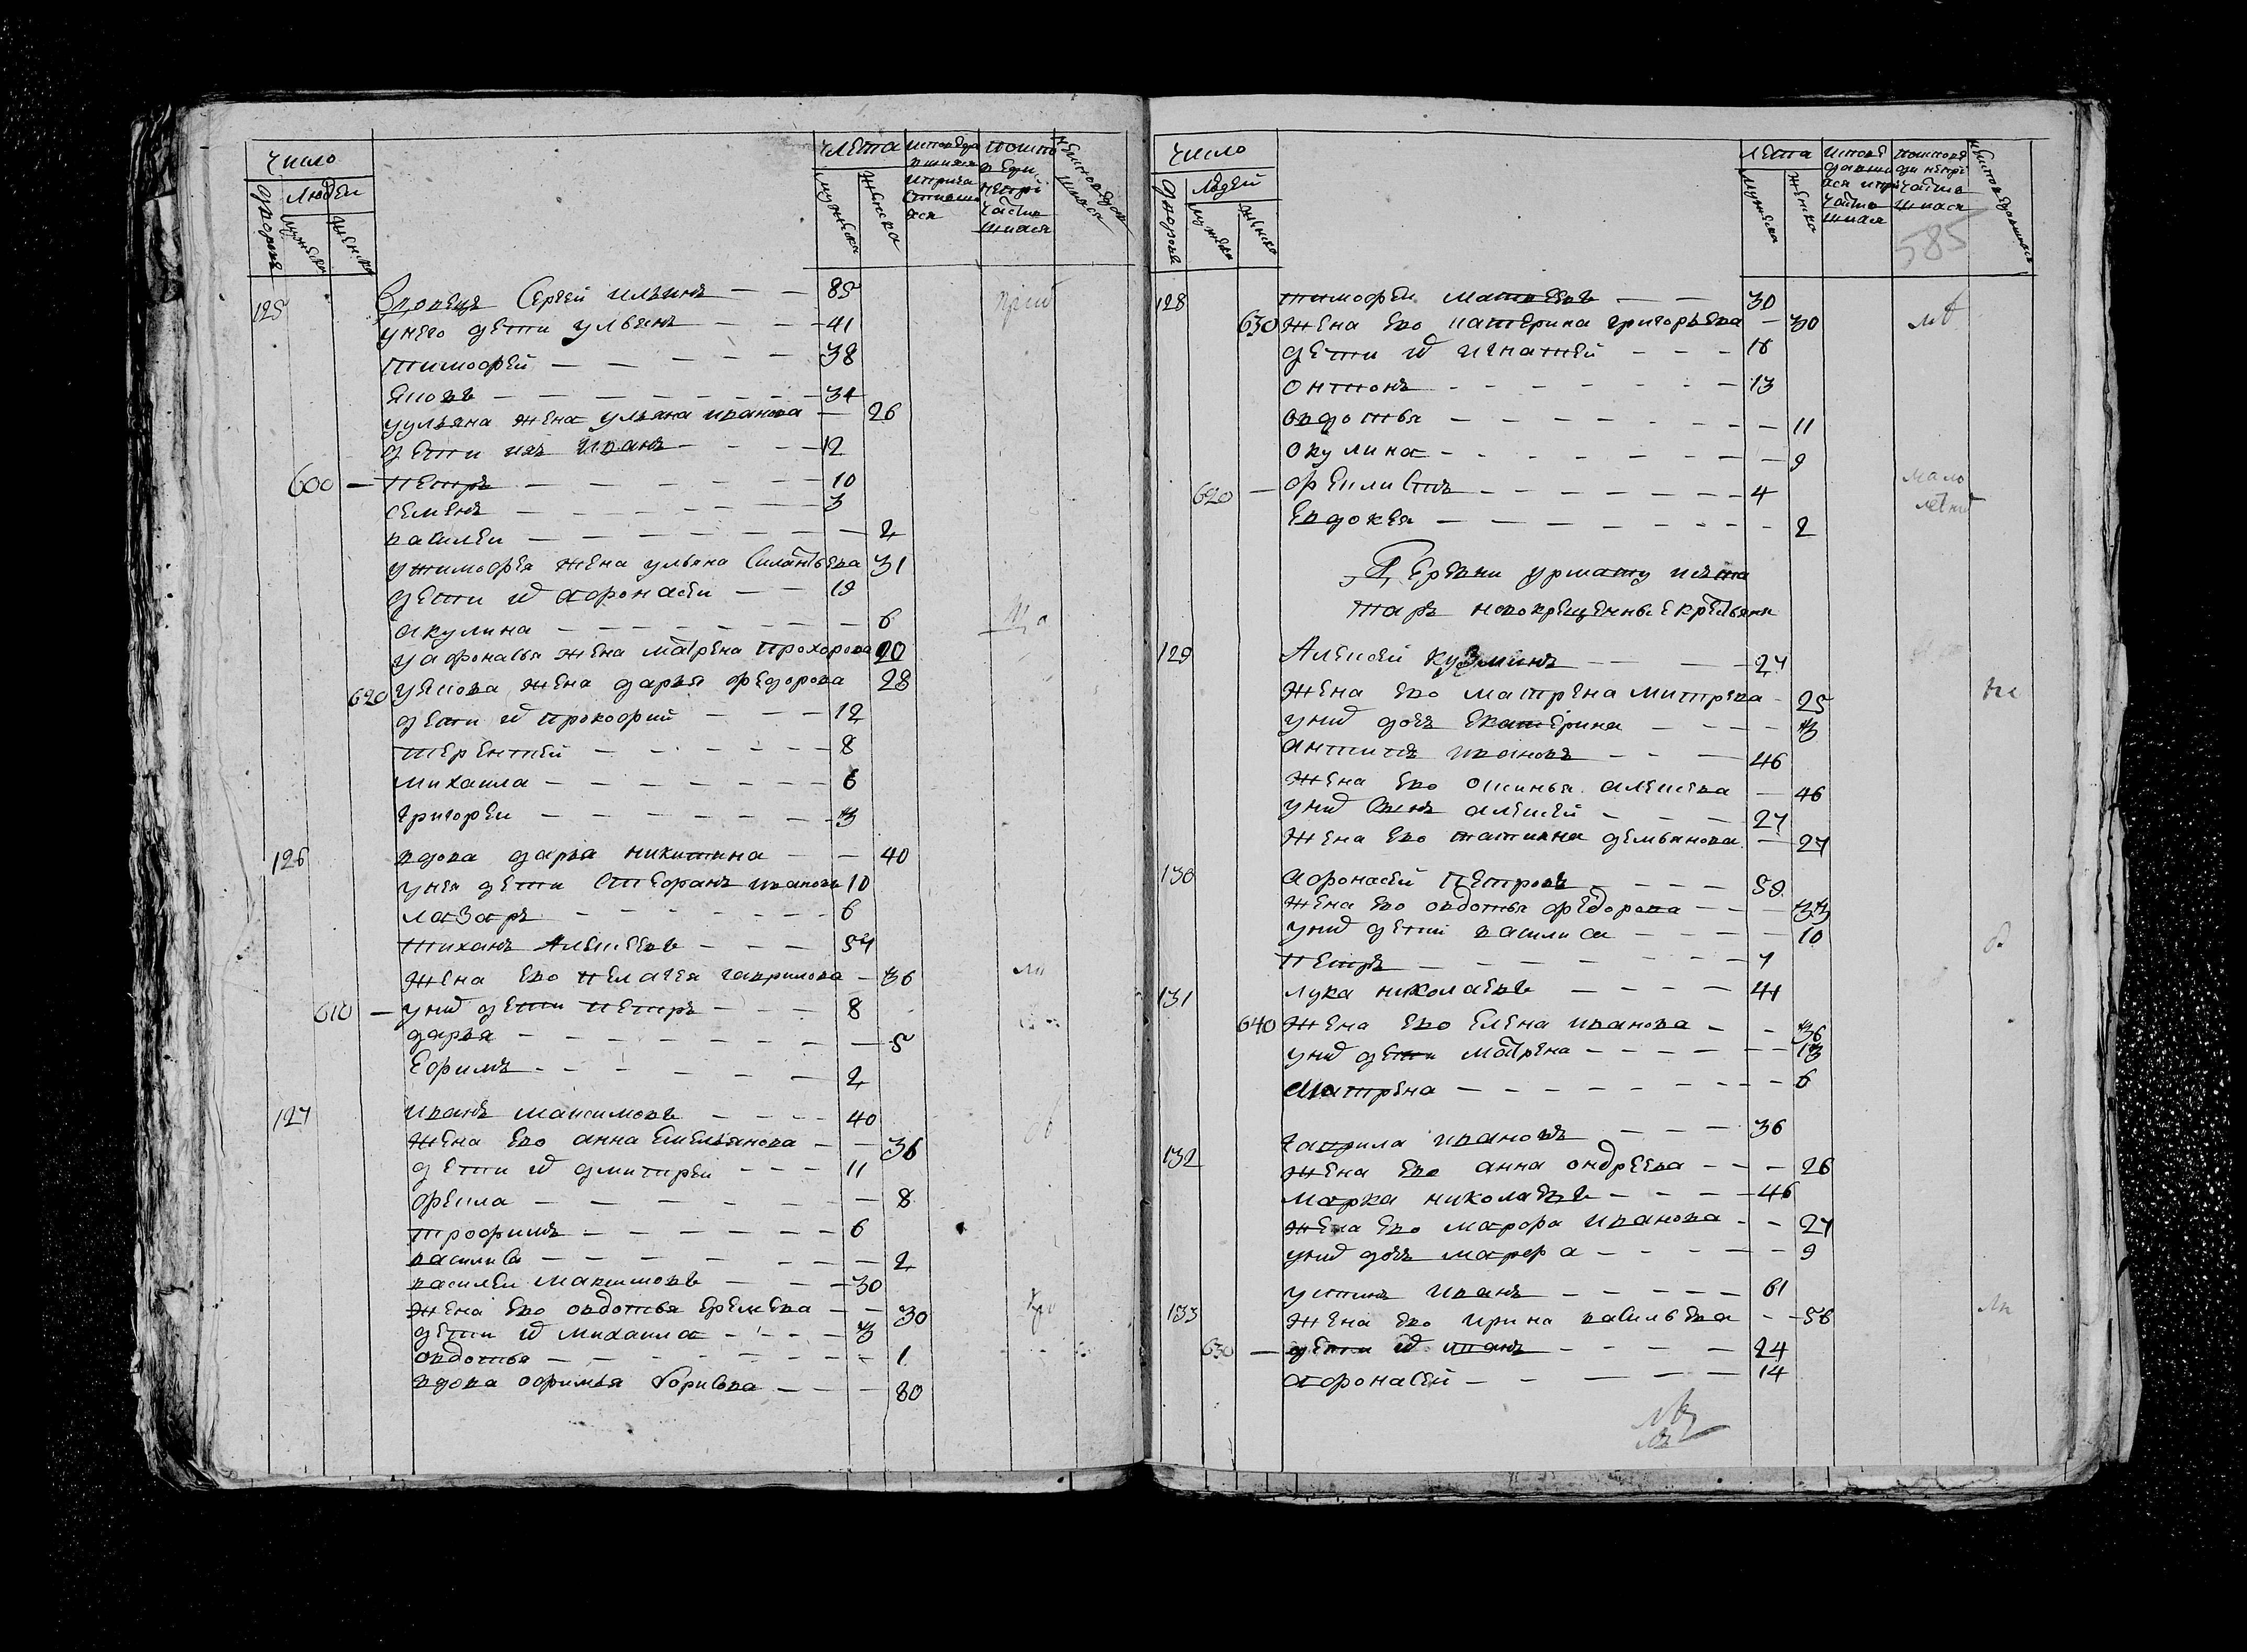 число
людей
дворовъ
мужеска
женска
лѣта
мужеска
женска
125 вдовецъ Сергей ильинъ 85
у него дети ульянъ 41
тимофей 38
яковъ 34
у ульяна жена ульяна иванова 26
дети ихъ иванъ 12
600 петръ 10
семенъ 3
василеи 2
у тимофея жена ульяна силантьева 31
дети их афонасеи 19
акулина 6
у афонасья жена матрена прохорова 20
620 у якова жена дарья федорова 28
дети их прокофий 12
терентеи 8
михаила 6
григореи 3
126 вдова дарья никитина 40
у нея дети степанъ ивановъ 10
лазарь 6
тиханъ Алексеевъ 54
жена ево пелагея гаврилова 36
610 у них дети петръ 8
дарья 5
Ефимъ 2
127 иванъ максимовъ 40
жена ево анна емельянова 36
дети их дмитреи 11
фекла 8
трофимъ 6
василиса 2
василеи максимовъ 30
жена ево овдотья еремеева 30
дети их михаила 3
овдотья 1
вдова офимья борисова 80
число
людей
дворовъ
мужеска
женска
лѣта
мужеска
женска
585
128 тимофеи матвеевъ 30
630 жена ево катерина григорьева 30
дети их игнатей 16
онтонъ 13
овдотья 11
окулина 9
620 феклистъ 4
мало
летни
Евдокея 2
Деревни
новокрещенные крестьяня
129 Алексей Кузминъ 27
жена ево матрена митрева 25
у них дочь Екатерина 3
антипъ ивановъ 46
жена ево оксинья алексева 46
у них сынъ алексей 27
жена ево татияна демьянова 27
130 афонасей петровъ 59
жена ево овдотья федорова 33
у них дети василиса 10
петръ 7
131 лука николаевъ 41
640 жена ево Елена иванова 36
у них дети матрена 13
матрена 6
132 гаврила ивановъ 36
жена ево анна ондреева 26
марка николаевъ 46
жена ево марфа иванова 27
у них дочь марфа 9
133 устинъ иванъ 61
жена ево ирина васильева 56
630 дети их иванъ 24
афонасей 14